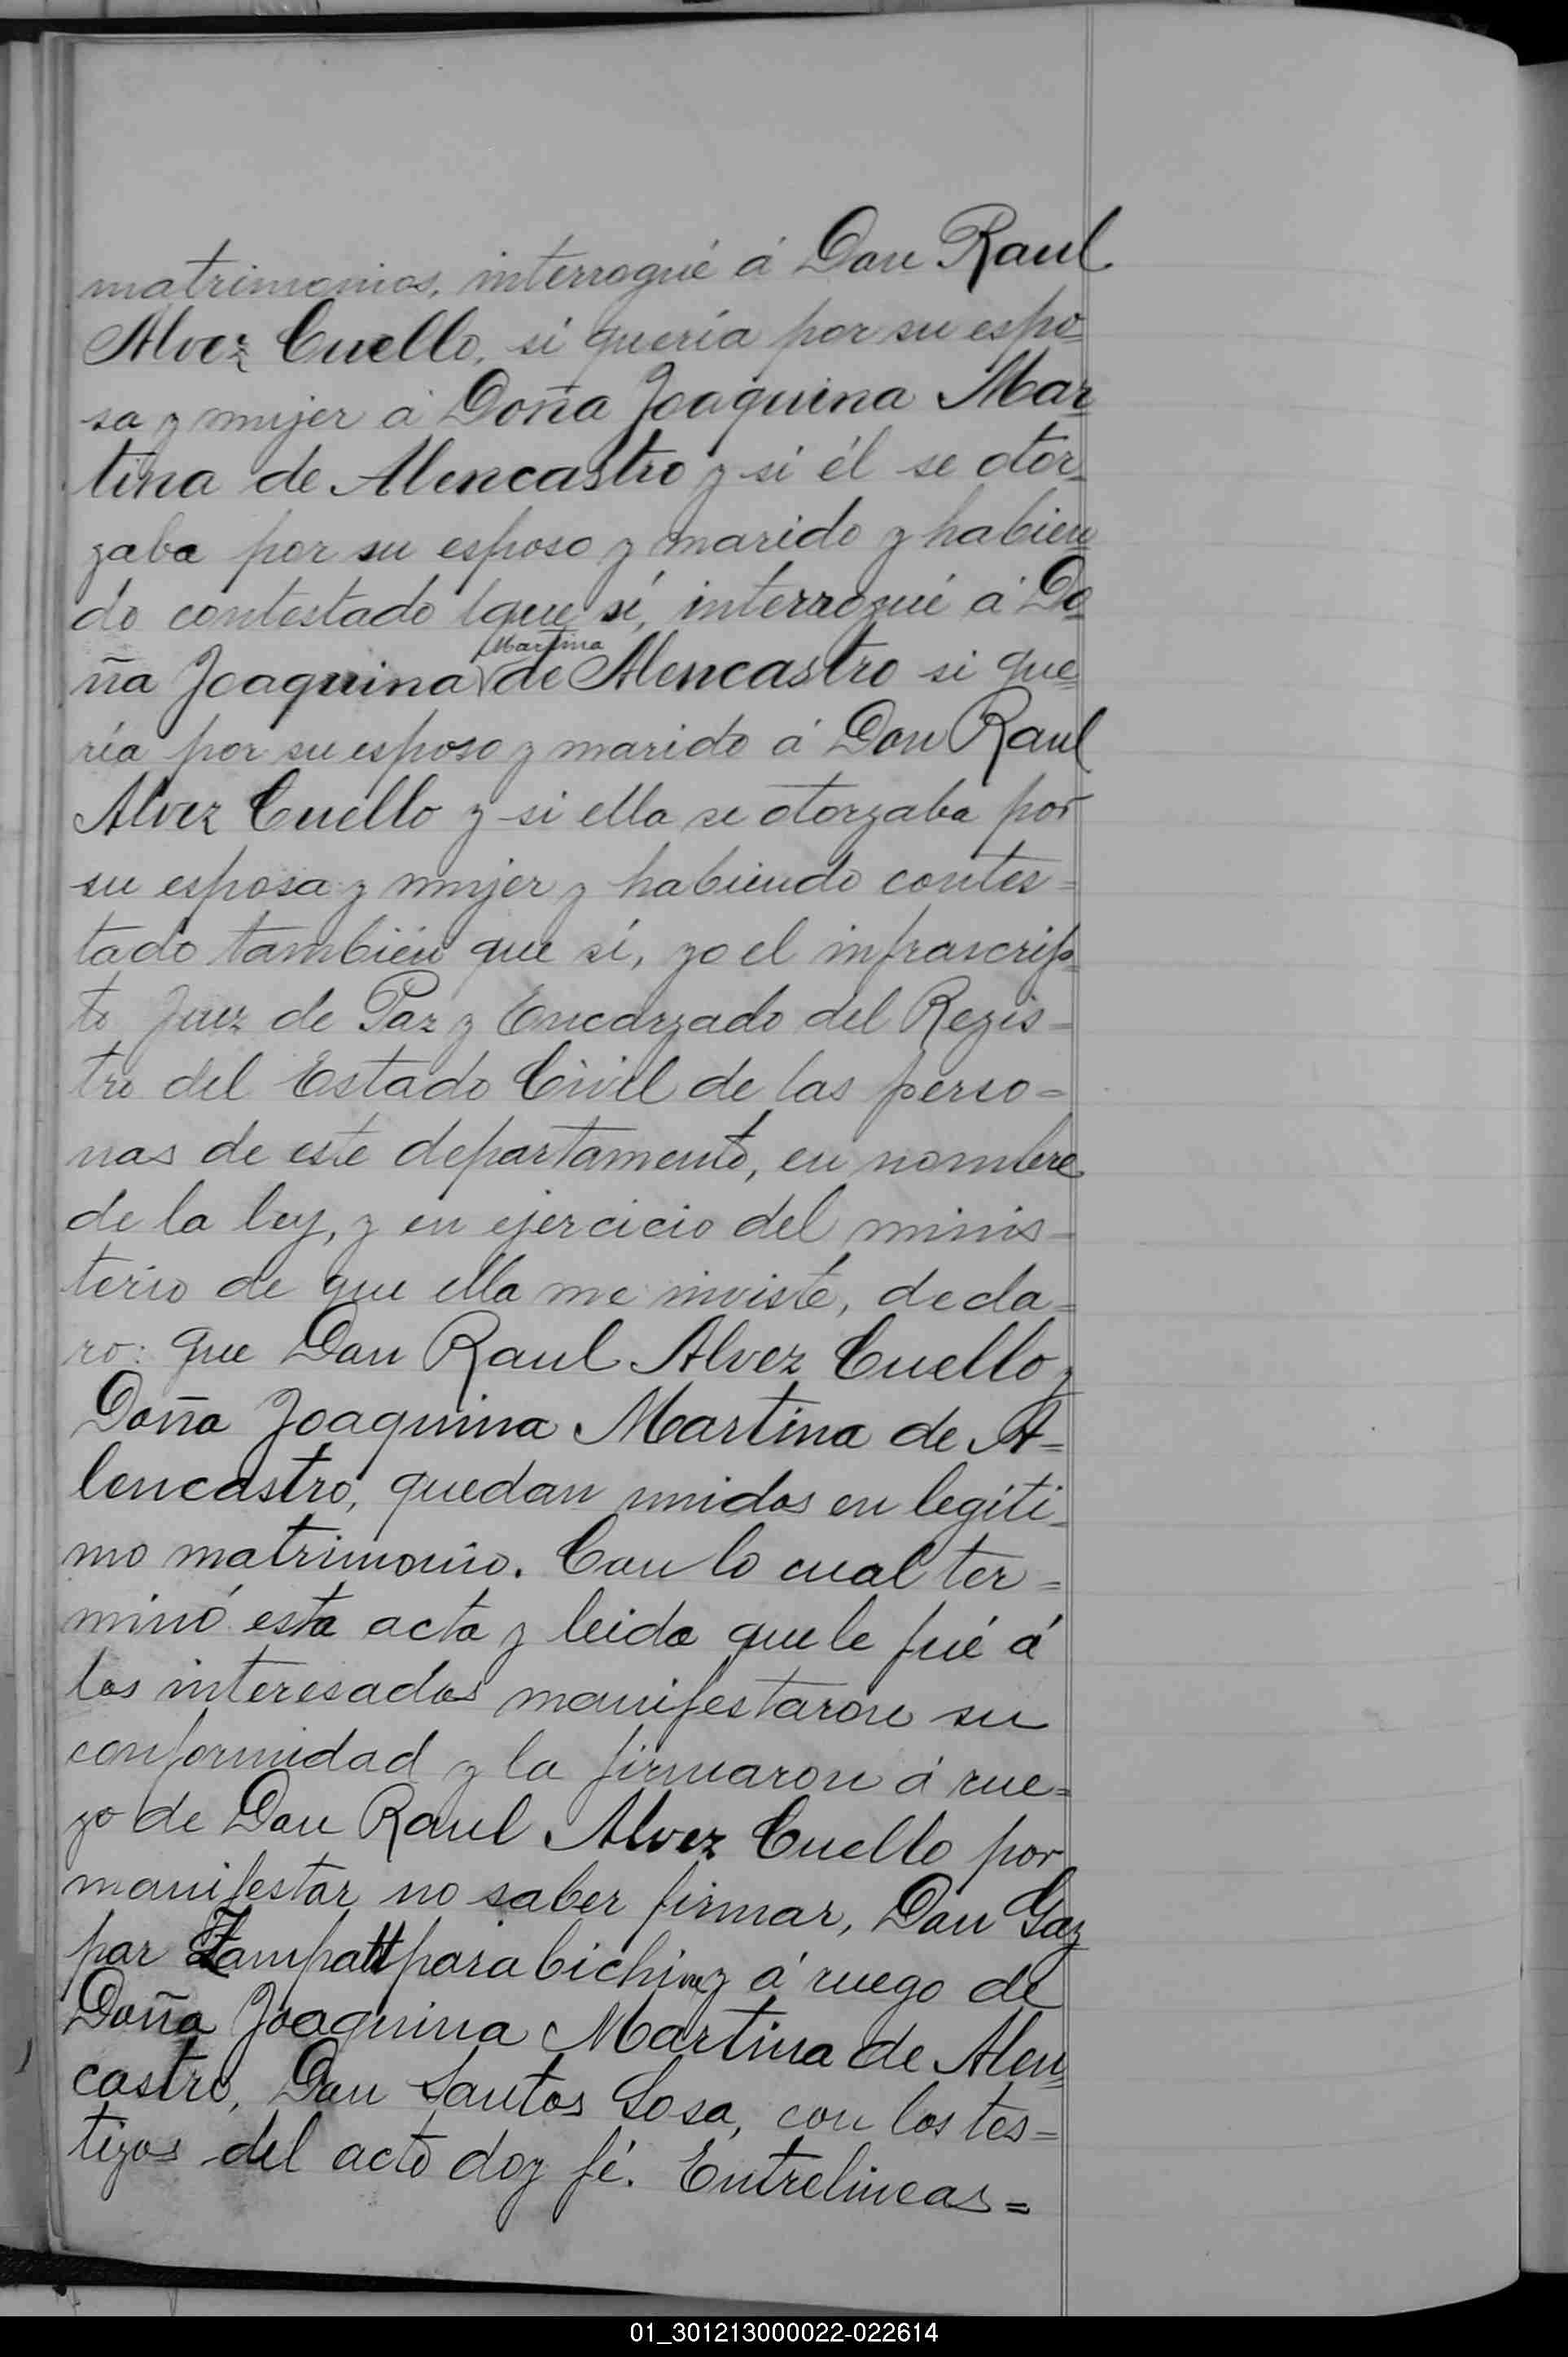 matrimonios, interrogué á Don Raul
Alvez Cuello, si quería por su espo=
sa y mujer á Doña Joaquina Mar-
tina de Alencastro y si él se otor-
gaba por su esposo y marido y habien
do contestado que sí, interrogué á Do
ña Joaquina Martina de Alencastro si que-
ría por su esposo y marido á Don Raul
Alvez Cuello y si ella se otorgaba por
su esposa y mujer y habiendo contes=
tado también que sí, yo el infrascrip-
to Juez de Paz y Encargado del Regis=
tro del Estado Civil de las perso=
nas de este departamento, en nombre
de la ley, y en ejercicio del minis-
terio de que ella me inviste, decla=
ro: que Don Raul Alvez Cuello y
Doña Joaquina Martina de A=
lencastro, quedan unidos en legíti-
mo matrimonio. Con lo cual ter=
minó esta acta y leida que le fué á
los interesados manifestaron su
conformidad y la firmaron á rue=
go de Don Raul Alvez Cuello por
manifestar no saber firmar, Don Gaz
par y á ruego de
Doña Joaquina Martina de Alen-
castro, Don Santos Sosa, con los tes=
tigos del acto doy fé. Entrelineas=
01_301213000022-022614